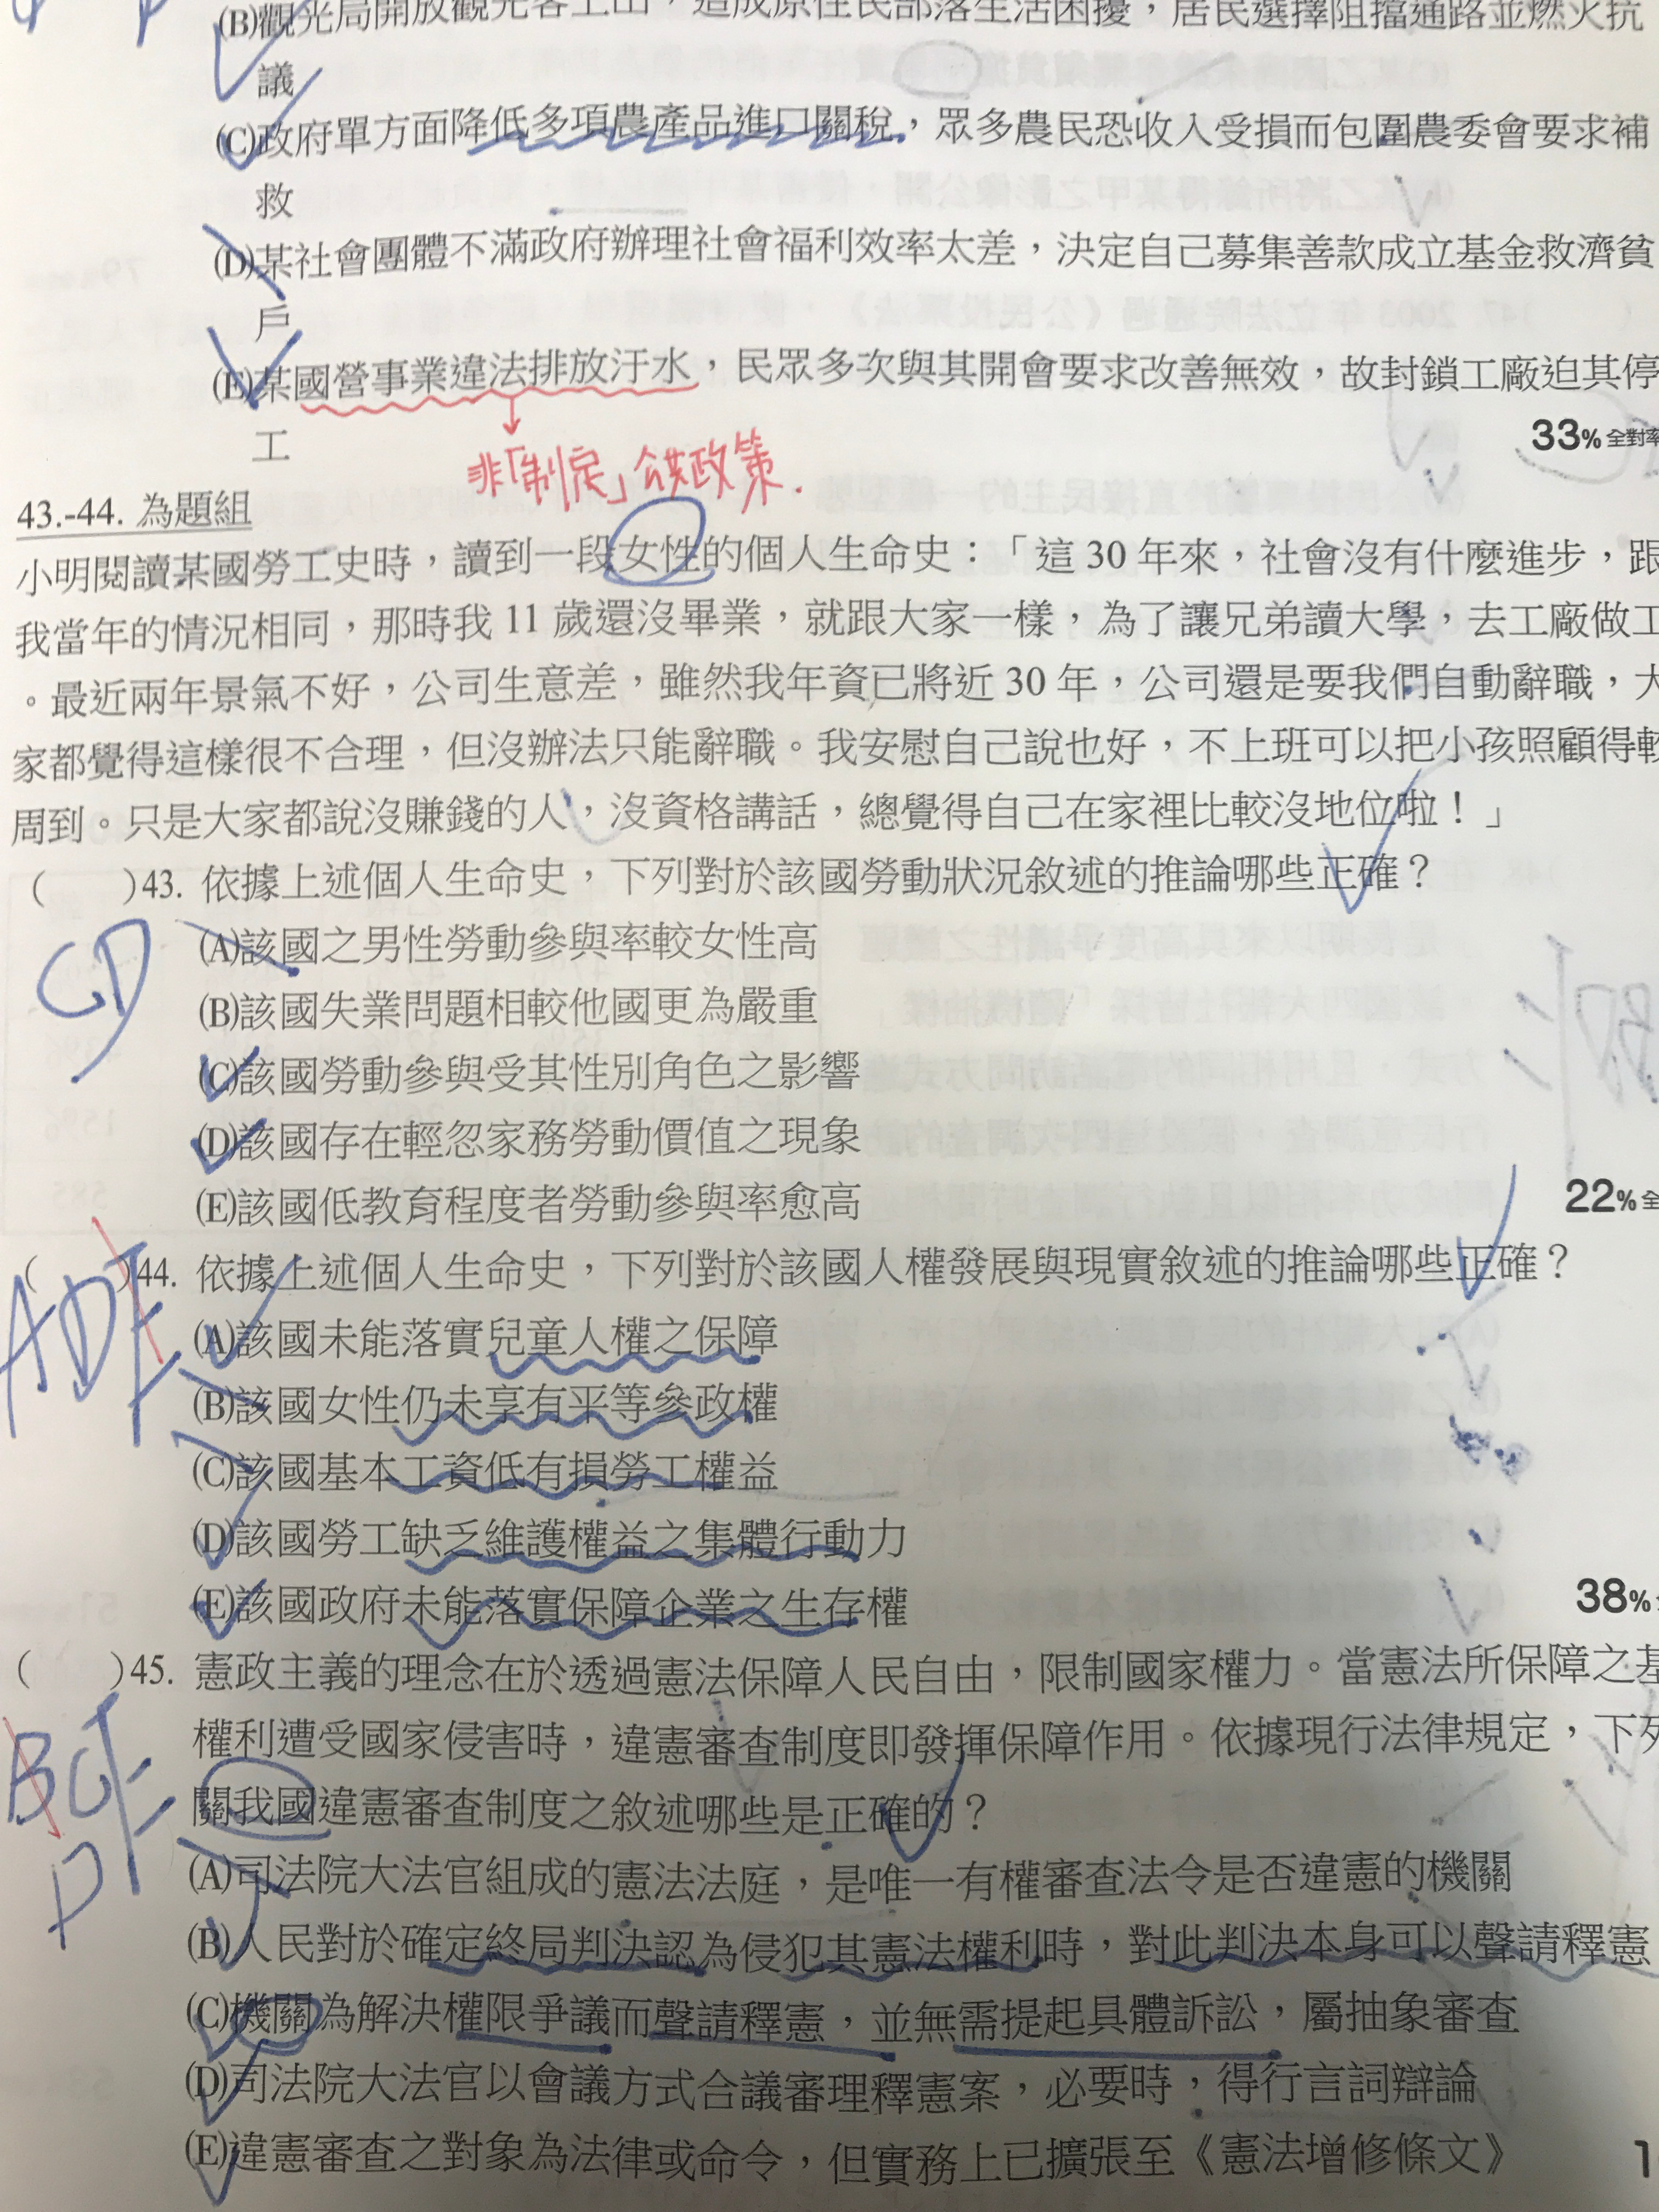 (B)觀光局開放觀光客上山，造成原住民部落生活困擾，居民選擇阻擋通路並燃火抗
議
(C)政府單方面降低多項農產品進口關稅，眾多農民恐收入受損而包圍農委會要求補
救
(D)某社會團體不滿政府辦理社會福利效率太差，決定自己募集善款成立基金救濟貧
戶
(E)某國營事業違法排放汙水，民眾多次與其開會要求改善無效，故封鎖工廠迫其停
工
33% 全對率
非「制定」公共政策.
43.-44. 為題組
小明閱讀某國勞工史時，讀到一段女性的個人生命史：「這 30 年來，社會沒有什麼進步，跟
我當年的情況相同，那時我 11 歲還沒畢業，就跟大家一樣，為了讓兄弟讀大學，去工廠做工
。最近兩年景氣不好，公司生意差，雖然我年資已將近 30 年，公司還是要我們自動辭職，大
家都覺得這樣很不合理，但沒辦法只能辭職。我安慰自己說也好，不上班可以把小孩照顧得較
周到。只是大家都說沒賺錢的人，沒資格講話，總覺得自己在家裡比較沒地位啦！」
(　　)43. 依據上述個人生命史，下列對於該國勞動狀況敘述的推論哪些正確？
CD
(A)該國之男性勞動參與率較女性高
(B)該國失業問題相較他國更為嚴重
(C)該國勞動參與受其性別角色之影響
(D)該國存在輕忽家務勞動價值之現象
(E)該國低教育程度者勞動參與率愈高
22% 全
(　　)44. 依據上述個人生命史，下列對於該國人權發展與現實敘述的推論哪些正確？
ADE
(A)該國未能落實兒童人權之保障
(B)該國女性仍未享有平等參政權
(C)該國基本工資低有損勞工權益
(D)該國勞工缺乏維護權益之集體行動力
(E)該國政府未能落實保障企業之生存權
38%
(　　)45. 憲政主義的理念在於透過憲法保障人民自由，限制國家權力。當憲法所保障之基
權利遭受國家侵害時，違憲審查制度即發揮保障作用。依據現行法律規定，下列
關我國違憲審查制度之敘述哪些是正確的？
BCE
D
(A)司法院大法官組成的憲法法庭，是唯一有權審查法令是否違憲的機關
(B)人民對於確定終局判決認為侵犯其憲法權利時，對此判決本身可以聲請釋憲
(C)機關為解決權限爭議而聲請釋憲，並無需提起具體訴訟，屬抽象審查
(D)司法院大法官以會議方式合議審理釋憲案，必要時，得行言詞辯論
(E)違憲審查之對象為法律或命令，但實務上已擴張至《憲法增修條文》